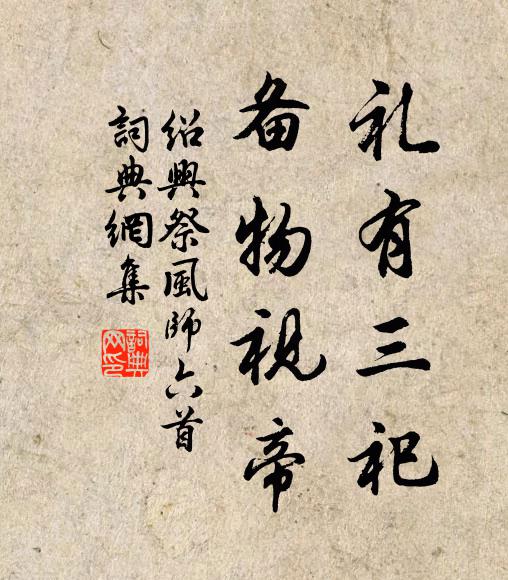 礼有三祀
备物视帝
绍興祭風師六首
詞典網集
詞典網印